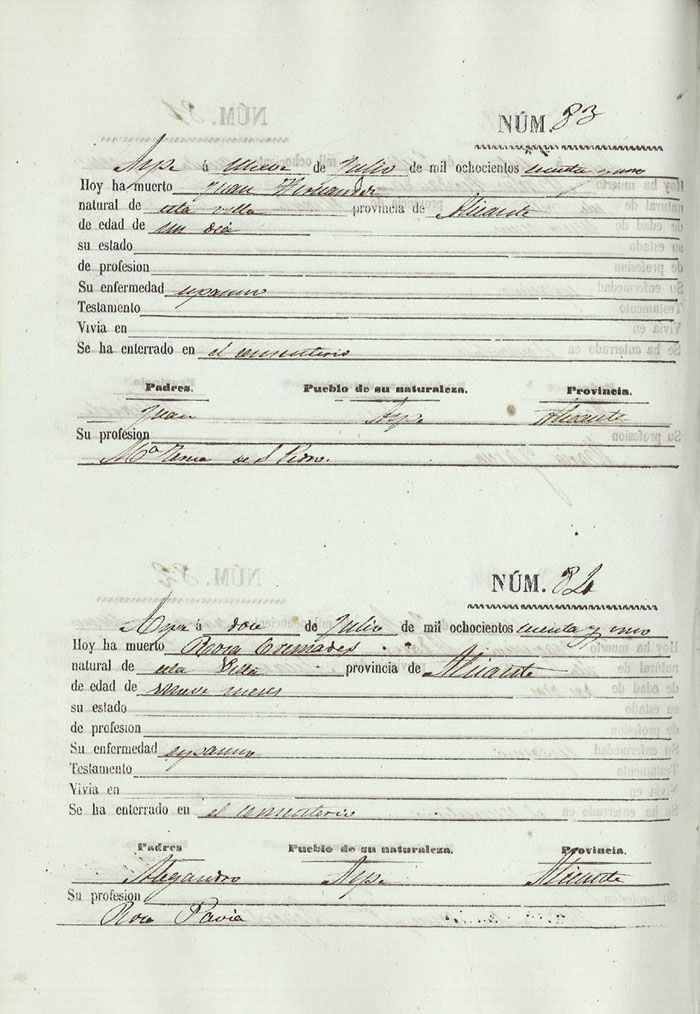 NÚM. 83
Aspe á nueve de Julio de mil ochocientos cincuenta y uno
Hoy ha muerto Juan Hernandes
natural de esta villa provincia de Alicante
de edad de un dia
su estado
de profesion
Su enfermedad espasmo
Testamento
Vivia en
Se ha enterrado en el cementerio
Padres. Pueblo de su naturaleza. Provincia.
Juan Aspe Alicante
Su profesion
Mª de S Pedro.
NÚM. 84
Aspe á doce de Julio de mil ochocientos cincuenta y uno
Hoy ha muerto Rosa Cremades
natural de esta Villa provincia de Alicante
de edad de nueve meses
su estado
de profesion
Su enfermedad espasmo
Testamento
Vivia en
Se ha enterrado en el cementerio
Padres Pueblo de su naturaleza. Provincia.
Alegandro Aspe Alicante
Su profesion
Rosa Pavia